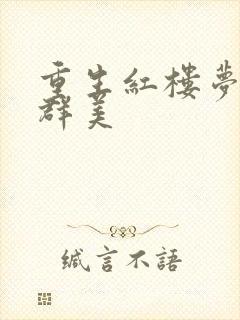 重生紅樓夢
群美
緘言不語